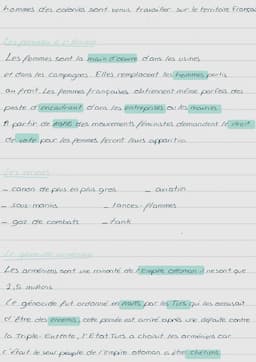 hommes des colonies sont venus travailler sur le territoire Français
Les femmes à l'arrière
Les femmes sont la main d'œuvre dans les usines
et dans les campagnes. Elles remplacent les hommes partis
au front. Les femmes françaises obtiennent même parfois des
poste d'encadrant dans les entreprises ou les mairies.
A partir de des mouvements féministes demandent le droit
de vote pour les femmes feront leurs apparition.
Les armes
- canon de plus en plus gros - aviation
- sous-marins - lances-flammes
- gaz de combats - tank
Le génocide arménien
Les arméniens sont une minorité de l'empire ottoman il ne sont que
2,5 millions.
Le génocide fut ordonné en par les Turcs qui les accusait
d'être des ennemis, cette pensée est arrivé après une défaite contre
la Triple-Entente, l'Etat Turcs a choisit les arméniens car
c'était le seul peuple de l'empire ottoman a être chrétiens.